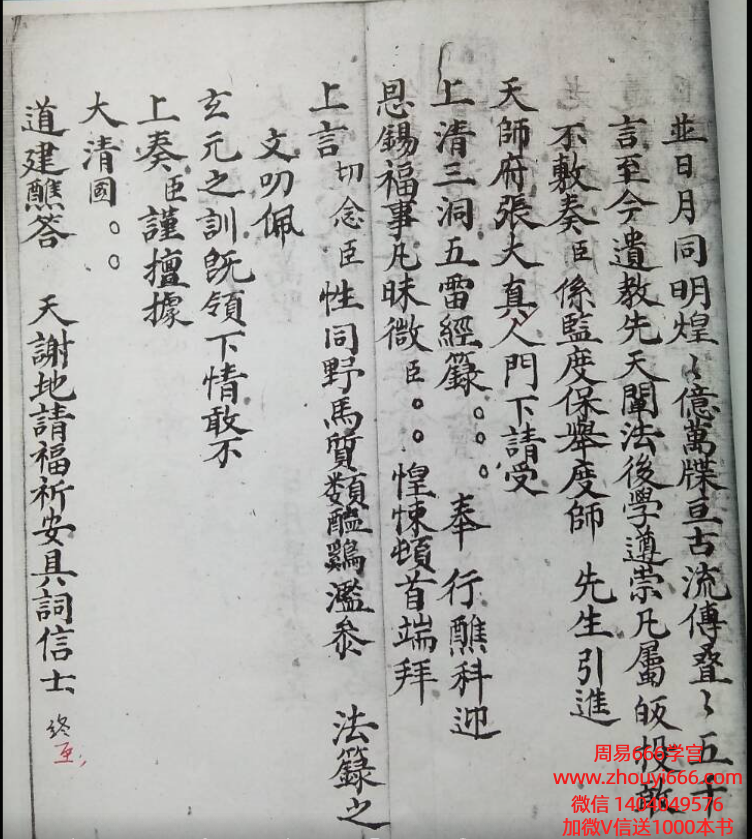 並日月同明煌〻億萬牒亘古流傳疊〻五千
言至今遺教先天闡法後學遵崇凡屬皈投敢
不敷奏臣係監度保舉度師 先生引進
天師府張大真人門下請受
上清三洞五雷經籙。。。奉行醮科迎
恩錫福事凡昧微臣。。惶悚頓首端拜
上言切念臣性同野馬質類醯鷄濫叅 法籙之
文叨佩
玄元之訓既領下情敢不
上奏臣謹擅據
大清國。。
道建醮答 天謝地請福祈安具詞信士
周易666学宫
www.zhouyi666.com
微信 1404849576
加微V信送1000本书